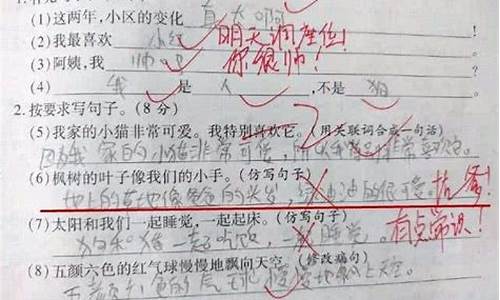 (1)这两年,小区的变化 真大啊
(2)我最喜欢 小红 明天调座位!
(3)阿姨,我 帅吗 你很帅!
(4) 我 是 人 ,不是 狗
2.按要求写句子。(8分)
(5)我家的小猫非常可爱。我特别喜欢它。(用关联词合成一句话)
因为我家的小猫非常可爱,所以我 非常喜欢它。
(6)枫树的叶子像我们的小手。(仿写句子)
地上的草地像爸爸的头发,绿油油的很可爱。 抗争!
(7)太阳和我们一起睡觉,一起起床。(仿写句子)
狗和猪一起吃饭,一起睡觉。 有点常识!
(8)五颜六色的红气球慢慢地飘向天空。(修改病句)
五颜六色的气球慢慢地飘上天空。